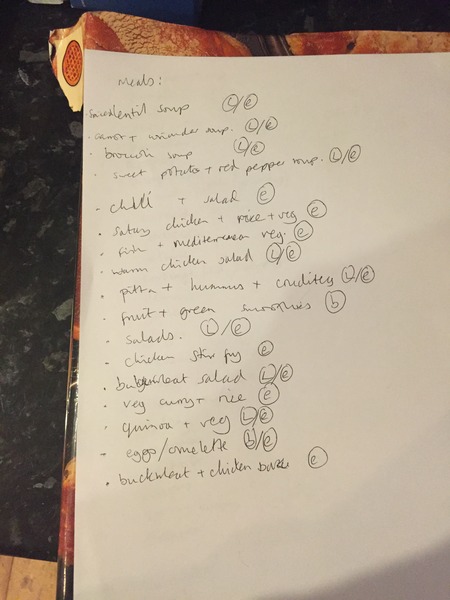 Meals:
lentil soup L/e
· carrot + coriander soup. L/e
· brocolli soup L/e
· sweet potato + red pepper soup. L/e
- chilli + salad e
· satay chicken + rice + veg e
· fish + mediterranean veg. e
· warm chicken salad L/e
· pitta + humous + crudites L/e
· fruit + green smoothies b
· salads. L/e
- chicken stir fry e
· salad L/e
· veg curry + rice e
· quinoa + veg L/e
- eggs/omelette b/e
· buckwheat + chicken bake e